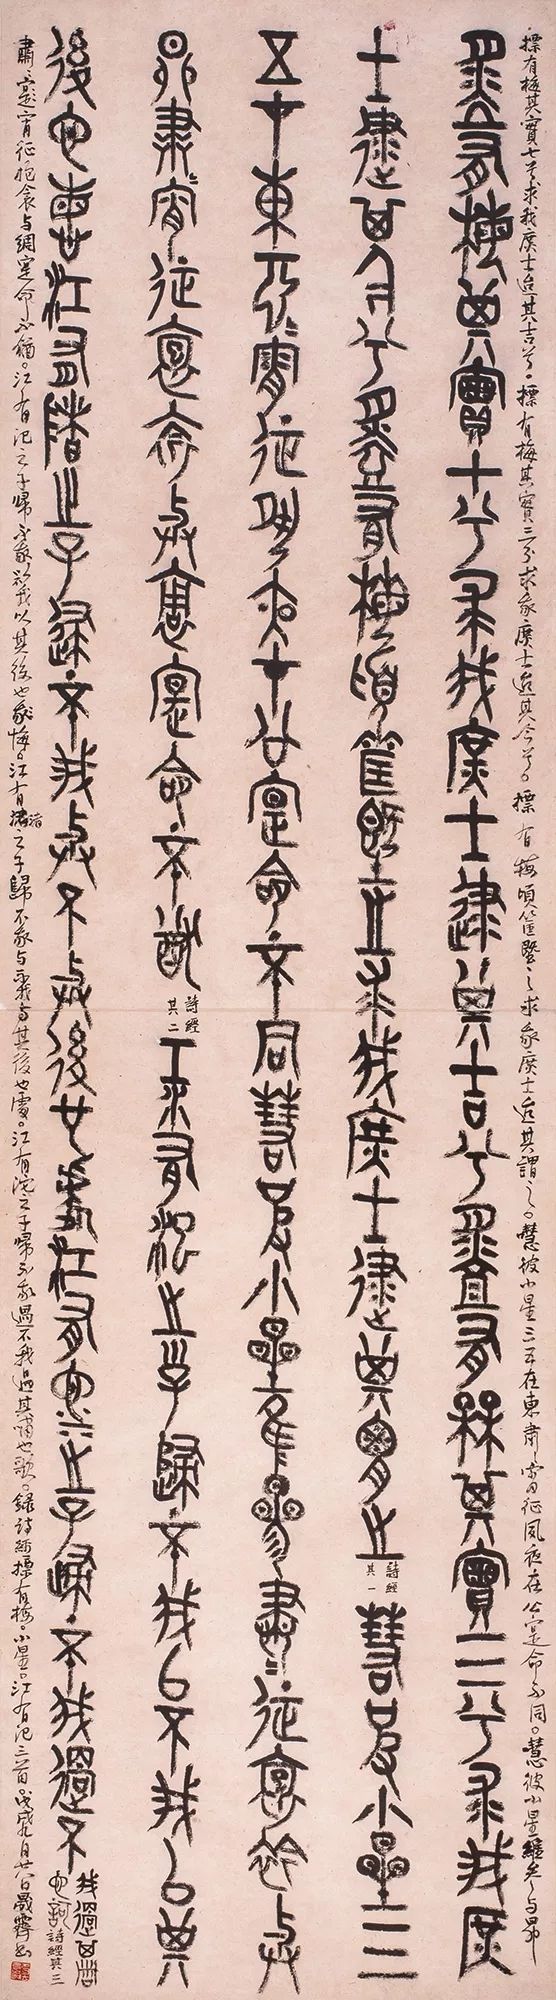 標有梅其實七兮求我庶士迨其吉兮。標有梅其實三兮求我庶士迨其今兮。標有梅頃筐塈之求我庶士迨其謂之。慧彼小星三五在東肅肅宵征夙夜在公寔命不同。慧彼小星維參与昴
摽有梅其實七兮求我庶士迨其吉兮摽有梅其實三兮求我庶
士迨其今兮摽有梅頃筐塈之求我庶士迨其謂之 詩經其一 慧彼小星三
五在東肅肅宵征夙夜在公寔命不同慧彼小星維參
昴肅肅宵征抱衾與裯寔命不猶 詩經其二 江有汜之子歸不我以不我以其
後也悔江有渚之子歸不我與不我與後也處江有沱之子歸不我過不
我過其嘯也歌 詩經其三
肅肅宵征抱衾与裯寔命不猶。江有汜之子歸不我以不我以其後也悔。江有渚之子歸不我与不我与其後也處。江有沱之子歸不我過不我過其嘯也歌。錄詩經標有梅。小星。江有汜三首。戊戌九月廿八日晟霽書